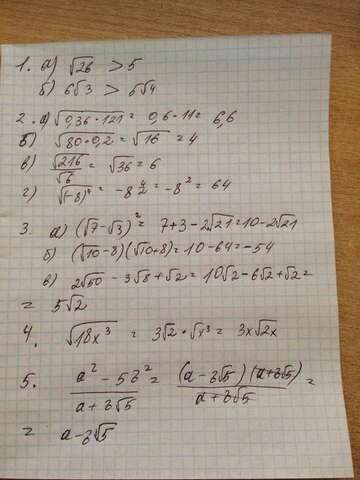 1. а) √26 > 5
б) 6√3 > 6√4
2. а) √0,36·121 = 0,6·11 = 6,6
б) √80·0,2 = √16 = 4
в) √216/√6 = √36 = 6
г) √(-8)⁴ = -8^(4/2) = -8² = 64
3. а) (√7-√3)² = 7+3-2√21 = 10-2√21
б) (√10-8)(√10+8) = 10-64 = -54
в) 2√50 - 3√8 + √2 = 10√2 - 6√2 + √2 =
= 5√2
4. √18x³ = 3√2 · √x³ = 3x√2x
5. (a² - 5b²)/(a + b√5) = ((a - b√5)(a + b√5))/(a + b√5) =
= a - b√5